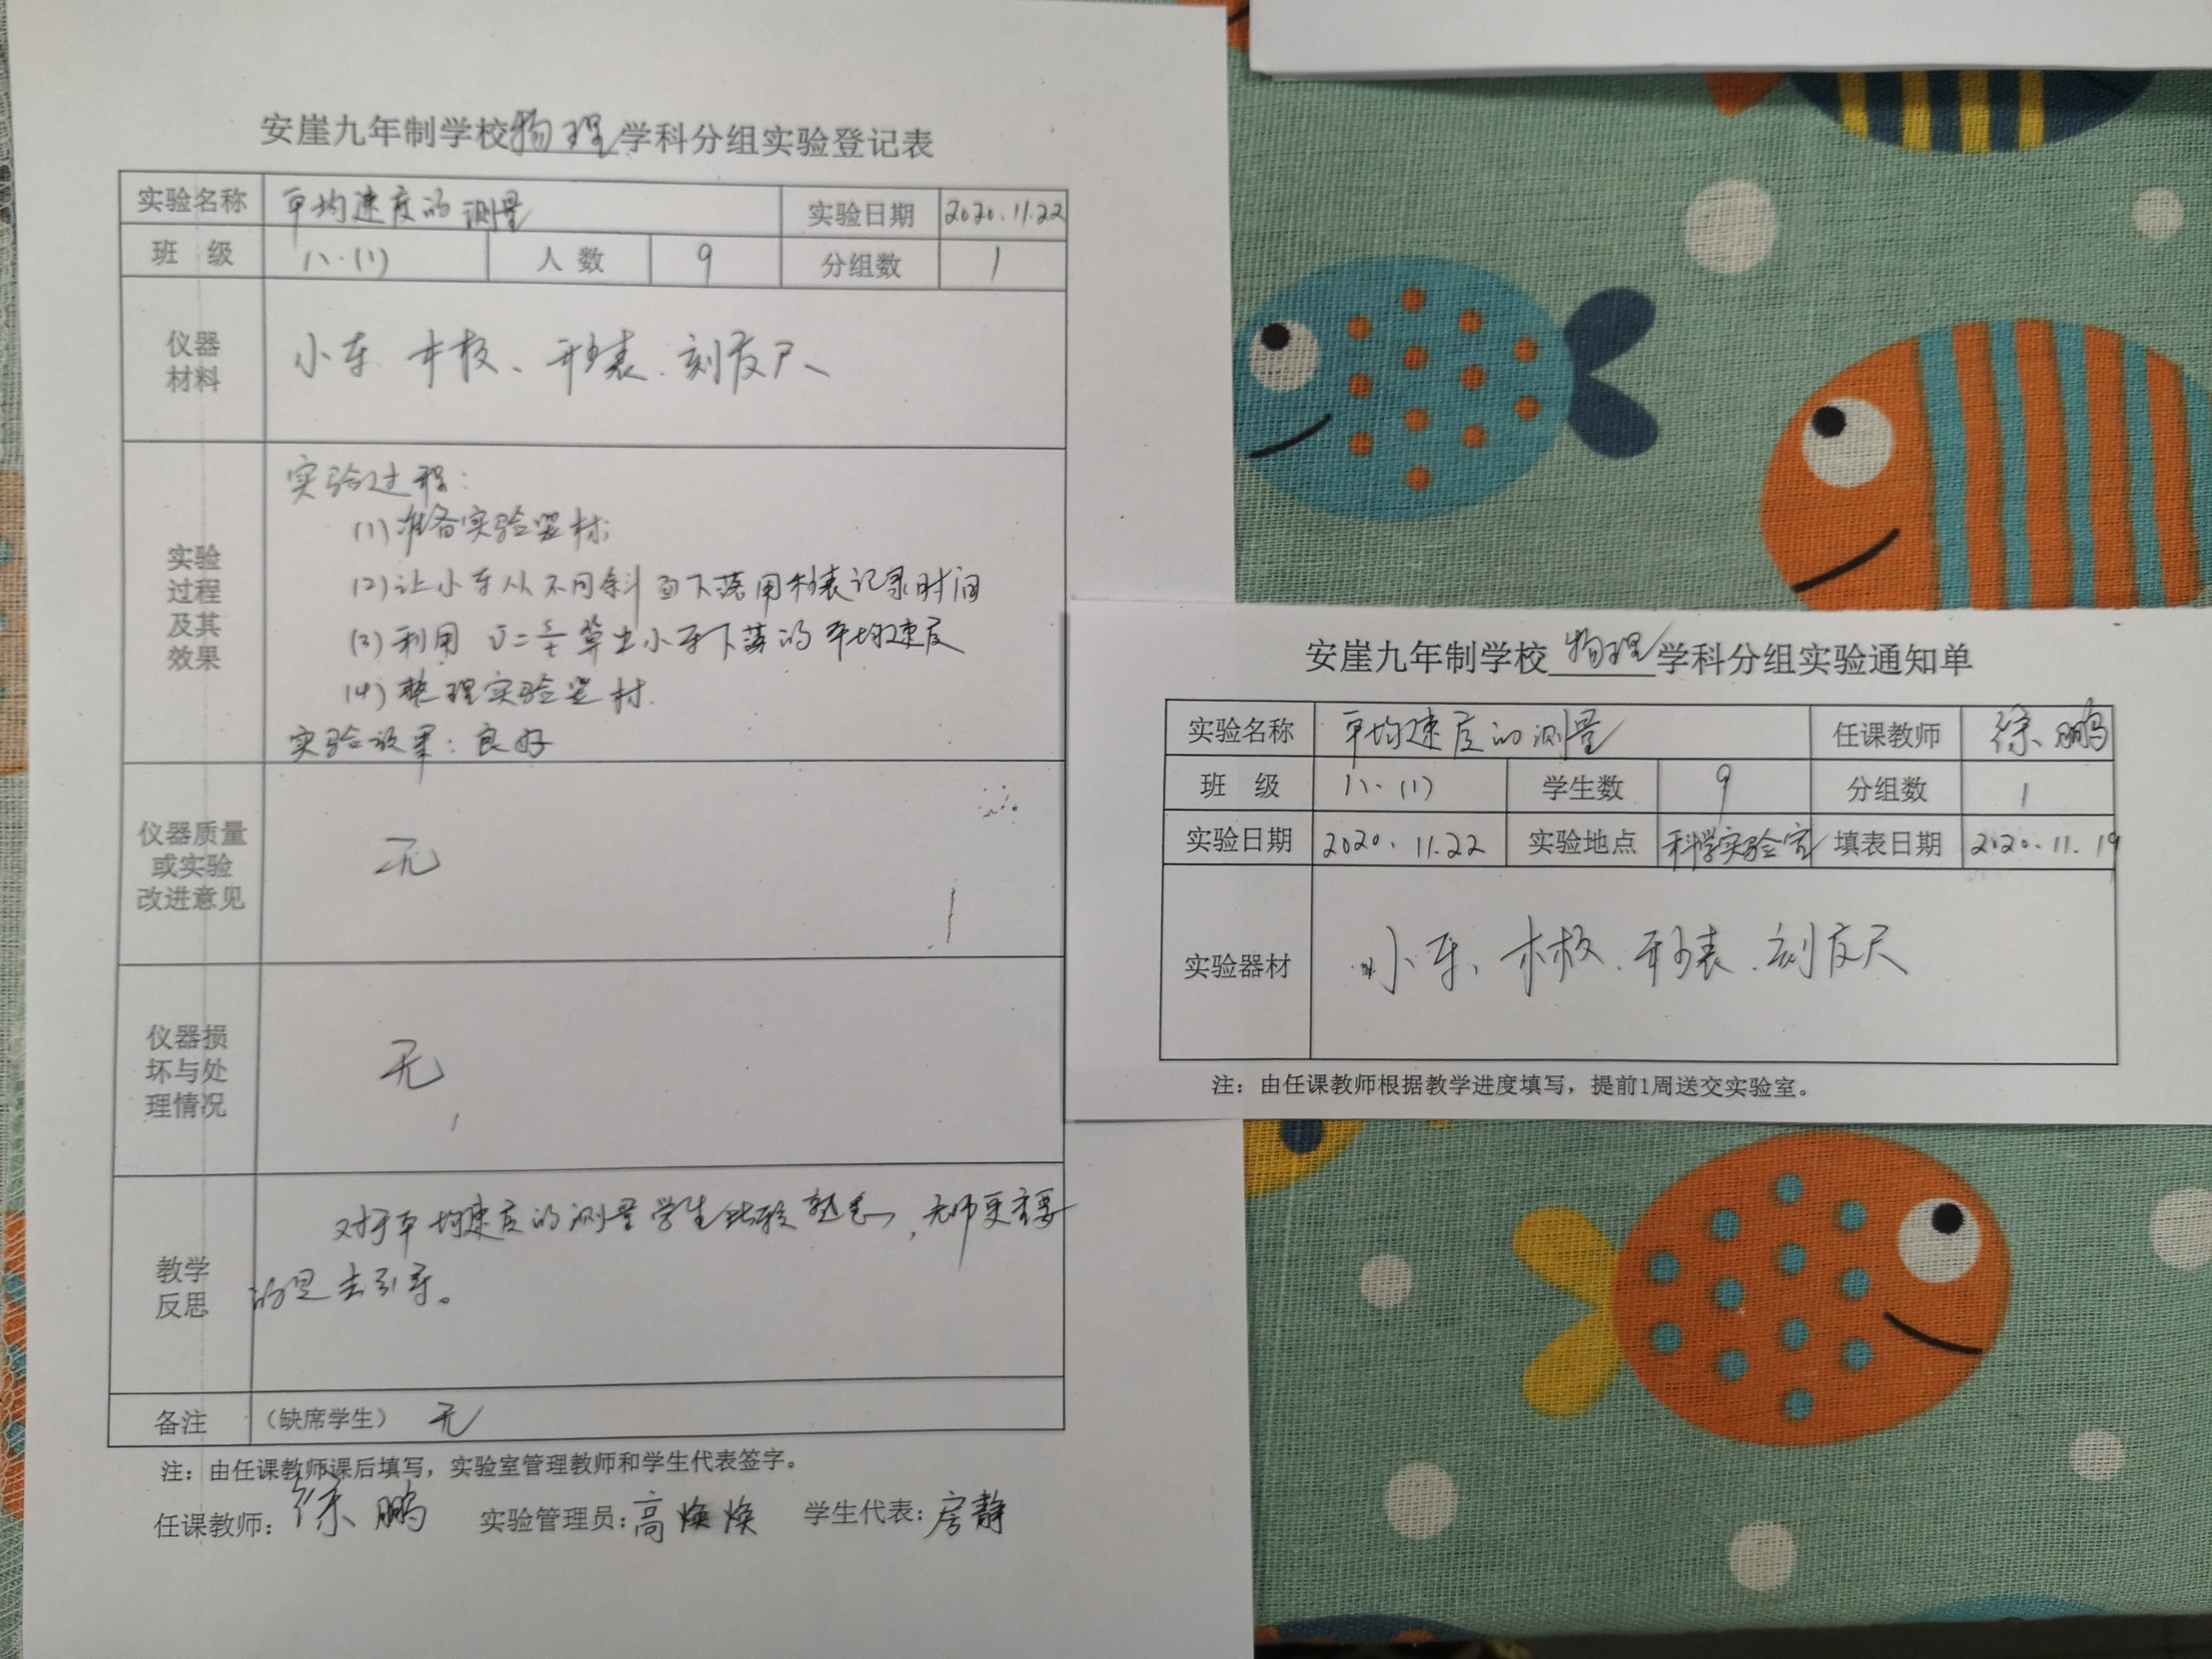 安崖九年制学校物理学科分组实验登记表
实验名称 平均速度的测量 实验日期 2020.11.22
班 级 八.(1) 人数 9 分组数 1
仪器
材料
小车、木板、秒表、刻度尺、
实验
过程
及其
效果
实验过程:
(1)准备实验器材
(2)让小车从不同斜面下落用秒表记录时间
(3)利用 v=s/t 算出小车下落的平均速度
(4)整理实验器材.
实验效果:良好
仪器质量
或实验
改进意见
无
仪器损
坏与处
理情况
无
教学
反思
对于平均速度的测量学生比较熟悉,老师更主要
的是去引导。
备注 (缺席学生) 无
注:由任课教师课后填写,实验室管理教师和学生代表签字。
任课教师:徐鹏 实验管理员:高焕焕 学生代表:房静
安崖九年制学校物理学科分组实验通知单
实验名称 平均速度的测量 任课教师 徐鹏
班 级 八.(1) 学生数 9 分组数 1
实验日期 2020.11.22 实验地点 科学实验室 填表日期 2020.11.19
实验器材 小车、木板、秒表、刻度尺
注:由任课教师根据教学进度填写,提前1周送交实验室。